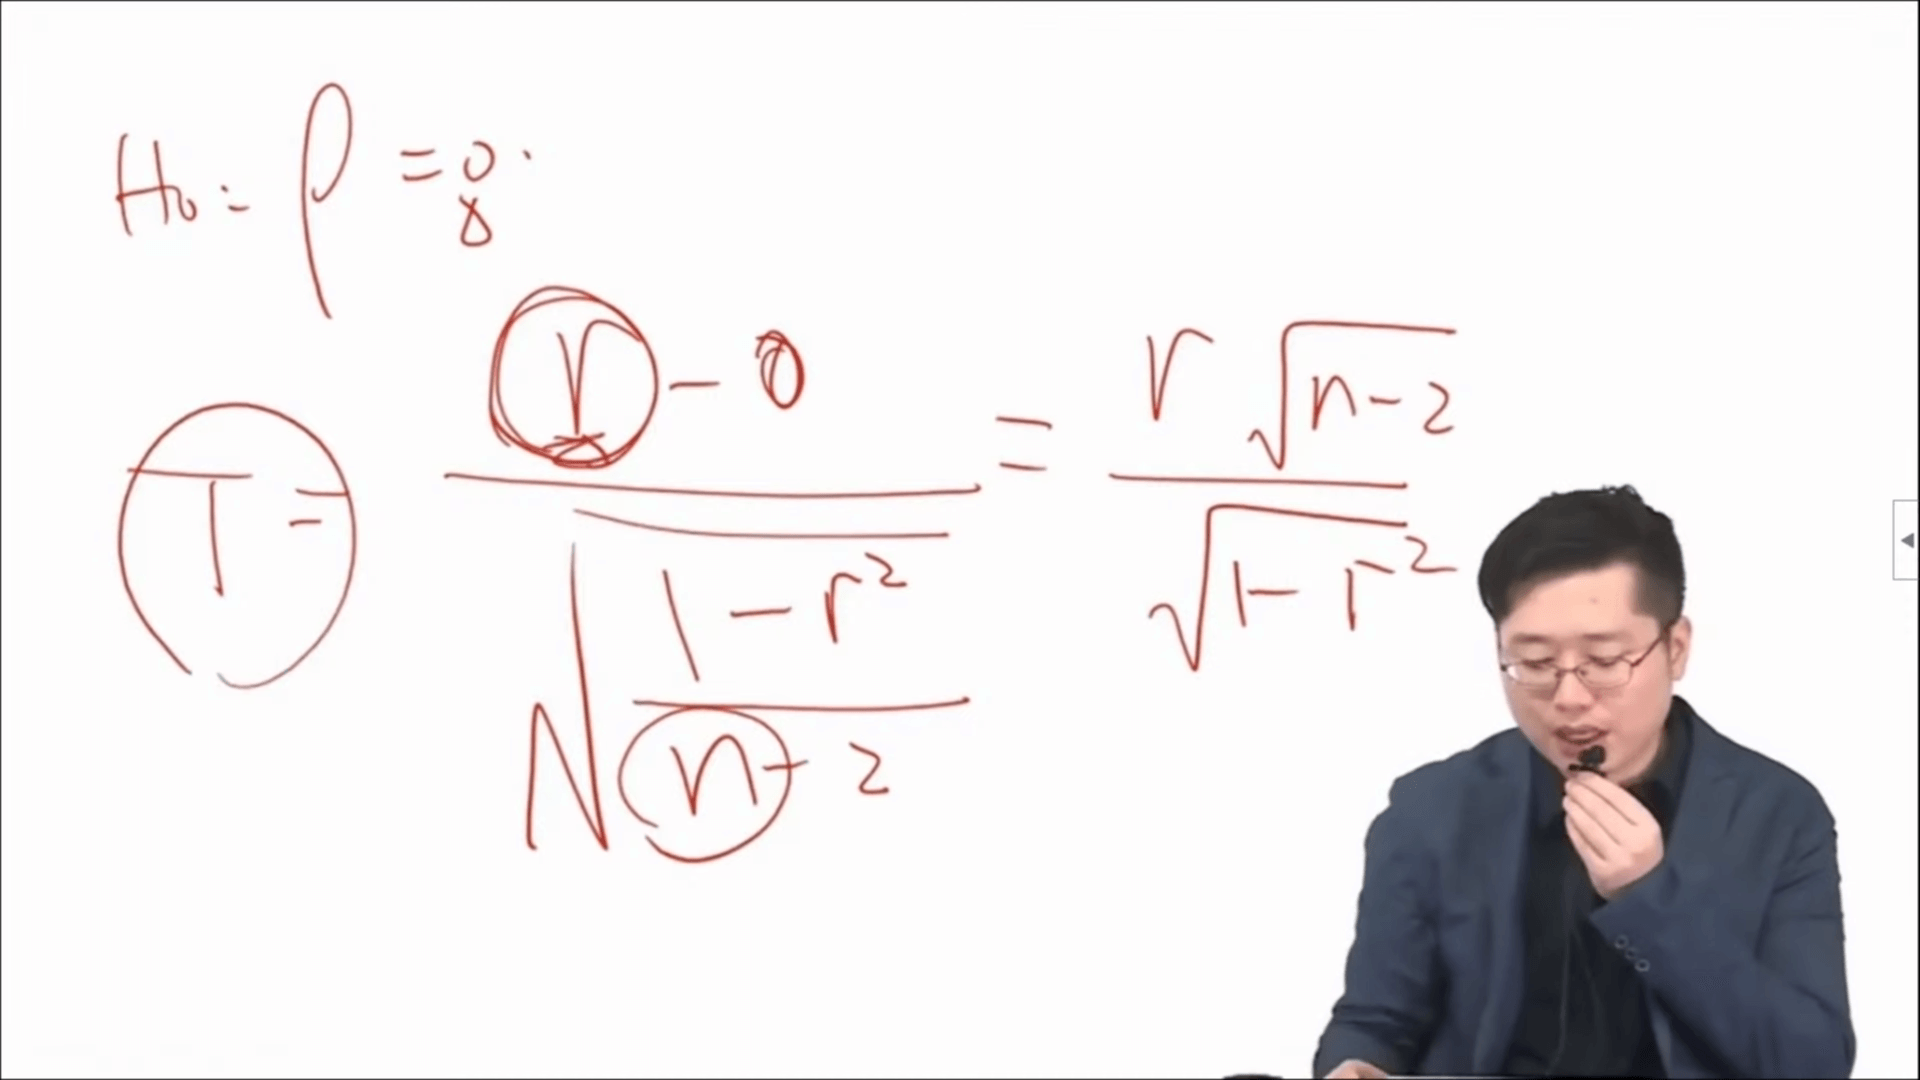 H₀: ρ = 0.
T = (r - 0) / √((1 - r²) / (n - 2)) = r √(n - 2) / √(1 - r²)